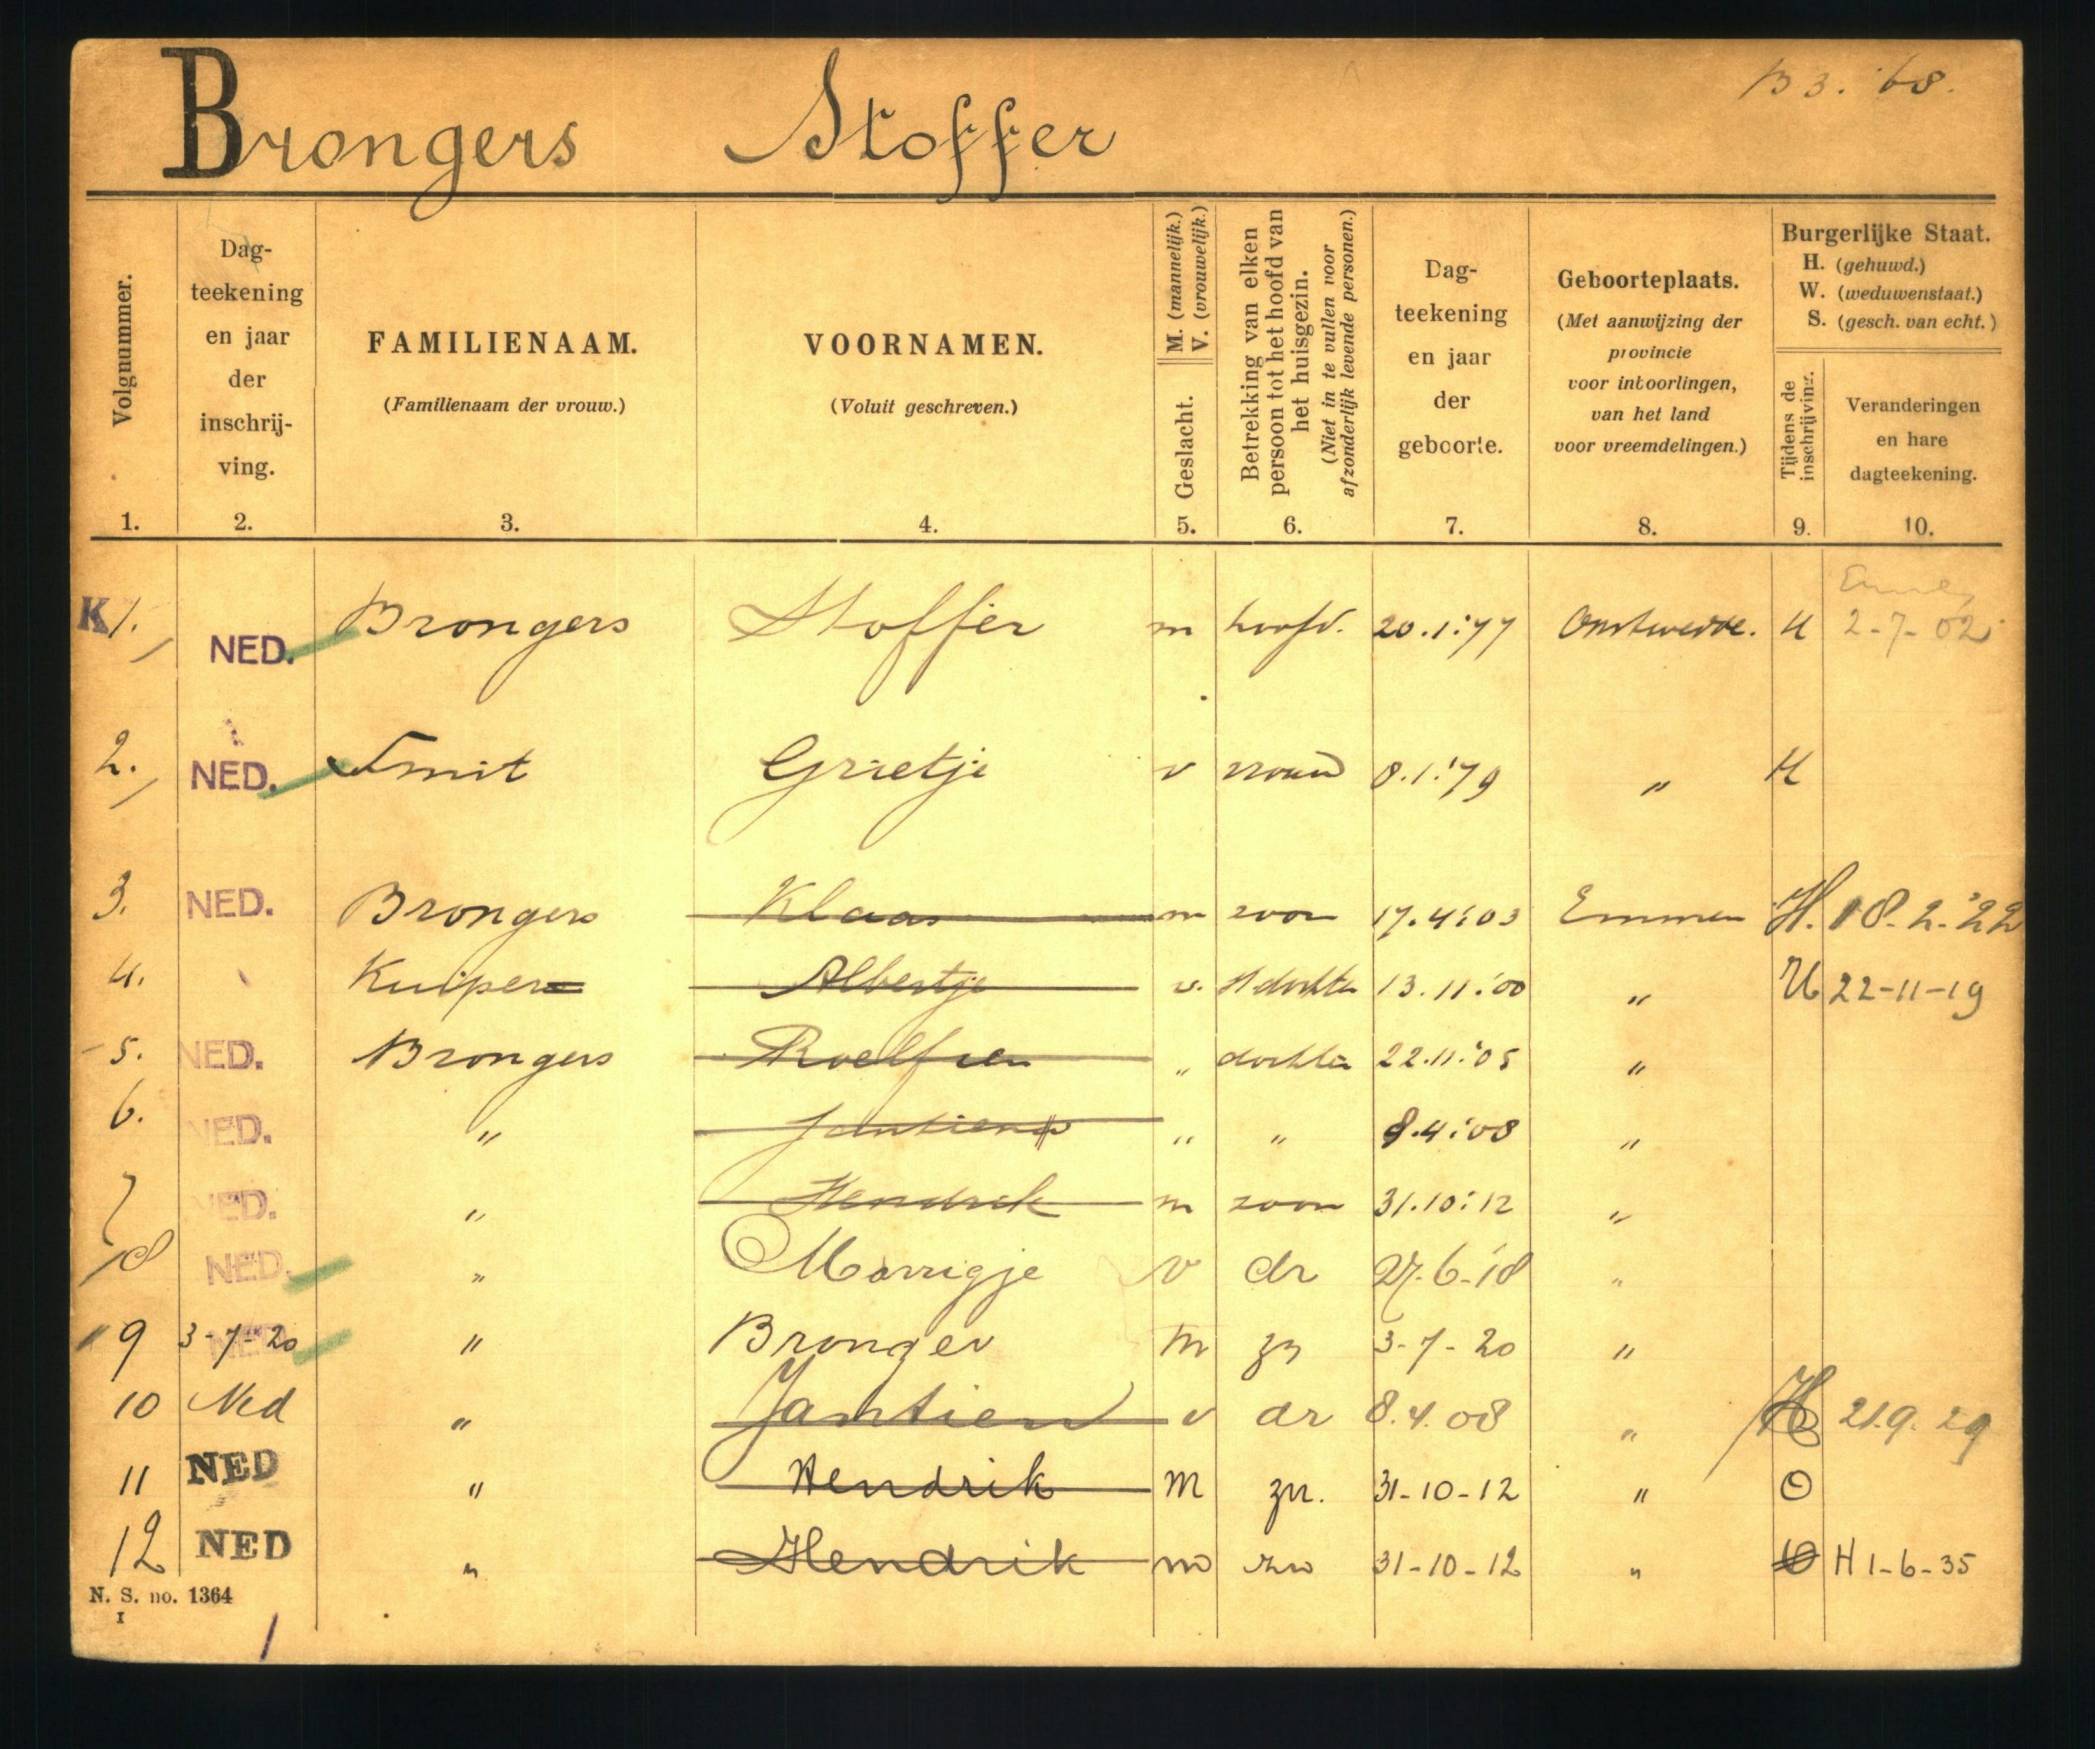 Brongers Stoffer B 3. '68.
Volgnummer.
1.
Dag-
teekening
en jaar
der
inschrij-
ving.
2.
FAMILIENAAM.
(Familienaam der vrouw.)
3.
VOORNAMEN.
(Voluit geschreven.)
4.
M. (mannelijk.)
V. (vrouwelijk.)
Geslacht.
5.
Betrekking van elken
persoon tot het hoofd van
het huisgezin.
(Niet in te vullen voor
afzonderlijk levende personen.)
6.
Dag-
teekening
en jaar
der
geboorte.
7.
Geboorteplaats.
(Met aanwijzing der
provincie
voor inboorlingen,
van het land
voor vreemdelingen.)
8.
Burgerlijke Staat.
H. (gehuwd.)
W. (weduwenstaat.)
S. (gesch. van echt.)
Tijdens de
inschrijving.
9.
Veranderingen
en hare
dagteekening.
10.
K 1. NED. Brongers Stoffer m hoofd. 20.1.'77 Onstwedde. H 2-7-02
2. NED. Smit Grietje v vrouw 8.1.'79 " H
3. NED. Brongers Klaas m zoon 17.4.'03 Emmen H. 18.2.'22
4. Kuiper Albertje v. dochter 13.11.'00 " H 22-11-19
5. NED. Brongers Roelfien " dochter 22.11.'05 "
6. NED. " Jantien " " 8.4.'08 "
7 NED. " Hendrik m zoon 31.10.'12 "
8 NED. " Marrigje v dr 27-6-'18 "
9 3-7-20 NED " Bronger m zn 3-7-20 "
10 Ned " Jantien v dr 8.4.08 " H 21.9.29
11 NED " Hendrik M zn. 31-10-12 " O
12 NED " Hendrik m zn 31-10-12 " O H 1-6-35
N. S. no. 1364
I